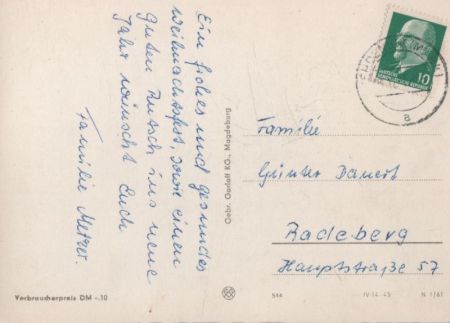 Ein frohes und gesundes
Weihnachtsfest sowie einen
Guten Rutsch ins neue
Jahr wünscht Euch
Familie Metzer.
Gebr. Garloff KG., Magdeburg
10
DEUTSCHE
DEMOKRATISCHE REPUBLIK
a
Familie
Günter Dauert
Radeberg
Hauptstraße 57
Verbraucherpreis DM -.10
544
IV-14-45
N 1/61